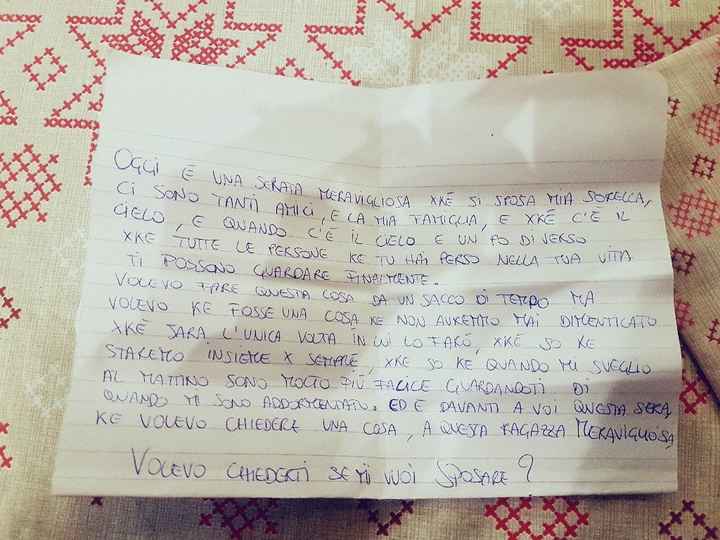 OGGI È UNA SERATA MERAVIGLIOSA XKÉ SI SPOSA MIA SORELLA,
CI SONO TANTI AMICI, E LA MIA FAMIGLIA, E XKÉ C'È IL
CIELO, E QUANDO C'È IL CIELO E UN PO DIVERSO
XKÉ TUTTE LE PERSONE KE TU HAI PERSO NELLA TUA VITA
TI POSSONO GUARDARE FINALMENTE.
VOLEVO FARE QUESTA COSA DA UN SACCO DI TEMPO MA
VOLEVO KE FOSSE UNA COSA KE NON AVREMMO MAI DIMENTICATO
XKÉ SARA L'UNICA VOLTA IN CUI LO FARÓ, XKÉ SO KE
STAREMO INSIEME X SEMPRE, XKE SO KE QUANDO MI SVEGLIO
AL MATTINO SONO MOLTO PIÙ FALICE GUARDANDOTI DI
QUANDO MI SONO ADDORMENTATO. ED È DAVANTI A VOI QUESTA SERA,
KE VOLEVO CHIEDERE UNA COSA, A QUESTA RAGAZZA MERAVIGLIOSA
VOLEVO CHIEDERTI SE MI VUOI SPOSARE?